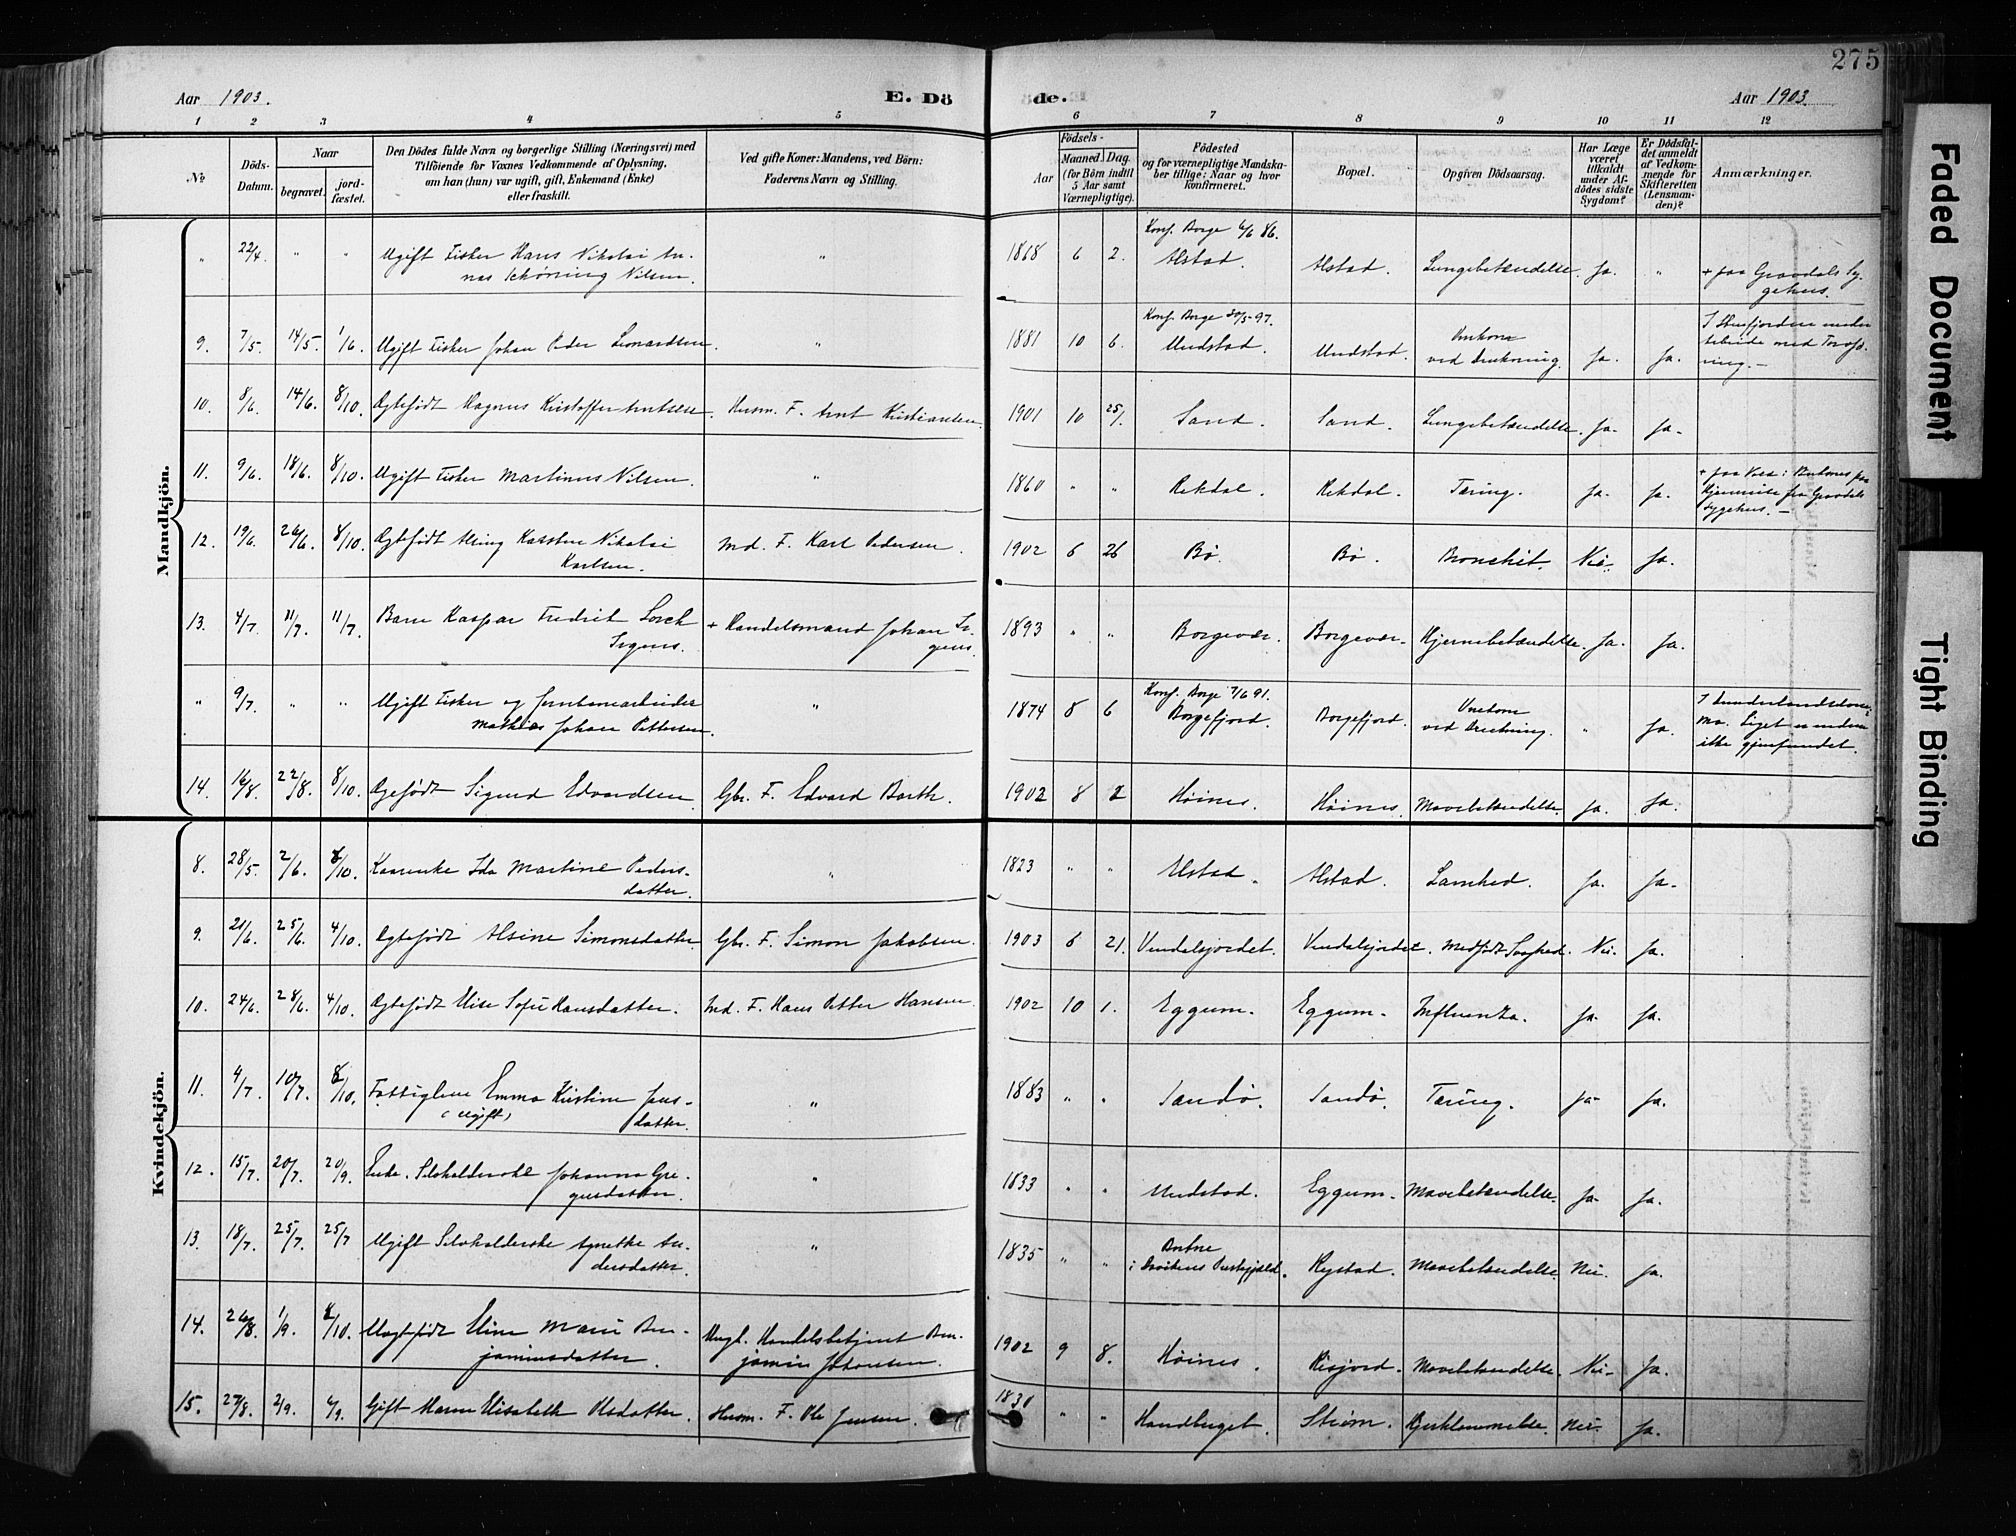 275
Aar 1903.
E. Dö
de.
Aar 1903
1 2 3 4 5 6 7 8 9 10 11 12
№
Döds-Datum.
Naar
begravet.
jord-fæstet.
Den Dödes fulde Navn og borgerlige Stilling (Næringsvei) med
Tilföiende for Voxnes Vedkommende af Oplysning,
om han (hun) var ugift, gift, Enkemand (Enke)
eller fraskilt.
Ved gifte Koner: Mandens, ved Börn:
Faderens Navn og Stilling.
Födsels-
Aar
Maaned
Dag
(for Börn indtil
5 Aar samt
Værnepligtige).
Födested
og for værnepligtige Mandska-
ber tillige: Naar og hvor
konfirmeret.
Bopæl.
Opgiven Dödsaarsag.
Har Læge
været
tilkaldt
under Af-
dödes sidste
Sygdom?
Er Dödsfal-
det anmeldt
af Vedkom-
mende for
Skifteretten
(Lensman-
den)?
Anmærkninger.
Mandkjön.
" 22/4. " " Ugift Fisker Hans Nikolai
Schøning Nilsen. " 1868 6 2. Konf. Borge 6/6 86.
Alstad. Alstad. Lungebetændelse. Ja. " + paa Gravdals Sy-
gehus.
9. 7/5. 14/5. 1/6. Ugift Fisker Johan Peder Leonardsen. " 1881 10 6. Konf. Borge 30/5 97.
Undstad. Undstad. Omkom
ved Drukning. Ja. Ja.
10. 8/6. 14/6. 8/10. Ægtefødt Magnus Kristoffer Arntsen. Husm. F. Arnt Kristiansen. 1901 10 25/1. Sand. Sand. Lungebetændelse. Ja. Ja.
11. 9/6. 18/6. 8/10. Ugift Fisker Martinus Nilsen. " 1860 " " Rekdal. Rekdal. Tæring. Ja. Ja. Hjemreise fra Gravdals
Sygehus.
12. 19/6. 26/6. 8/10. Ægtefødt Karsten Nikolai
Karlsen. Ind. F. Karl Pedersen. 1902 6 26 Bø. Bø. Bronchit. Nei. Ja.
13. 4/7. 11/7. 11/7. Barn Kaspar Fredrik Lorch
Irgens. + Handelsmand Johan Ir-
gens. 1893 " " Borgevær. Borgevær. Hjernebetændelse. Ja. Ja.
" 9/7. " " Ugift Fisker og Jernbanearbeider
Mathias Johan Pettersen. " 1874 8 6 Konf. Borge 7/6 91.
Borgefjord. Borgefjord. Omkom
ved Drukning. " Ja. Liget er endnu
ikke gjenfundet.
14. 16/8. 22/8. 8/10. Ægtefødt Sigurd Edvardsen Gbr. F. Edvard Barth. 1902 8 2 Høines. Høines. Mavebetændelse. Ja. Ja.
Kvindekjön.
8. 28/5. 2/6. 8/10. Ida Martine Peders-
datter. " 1823 " " Alstad. Alstad. Lamhed. Ja. Ja.
9. 21/6. 25/6. 4/10. Ægtefødt Alsine Simonsdatter Gbr. F. Simon Jakobsen. 1903 6 21. Vendalsjordet. Vendalsjordet. Medfødt Svaghed. Nei. Ja.
10. 24/6. 28/6. 4/10. Ægtefødt Elise Sofie Hansdatter. Ind. F. Hans Petter Hansen 1902 10 1. Eggum. Eggum. Influenza. Ja. Ja.
11. 4/7. 10/7. 8/10. Fattiglem Emma Kristine Jens-
(Ugift) datter. " 1883 " " Sandø. Sandø. Tæring. Ja. Ja.
12. 15/7. 20/7. 20/9. Enke. Selvholderske Johanna Gre-
gusdatter. " 1833 " " Undstad. Eggum. Mavebetændelse. Ja. Ja.
13. 18/7. 25/7. 25/7 Ugift Selvholderske Agnethe An-
dersdatter. " 1835 " " i Præstegjæld. Rystad. Mavebetændelse. Nei. Ja.
14. 26/8. 1/9. 8/10. Uægtefødt Eline Marie Ben-
jaminsdatter. Ungk. Handelsbetjent Ben-
jamin Johansen. 1902 9 8. Høines. Mavebetændelse. Nei. Ja.
15. 27/8. 2/9. 6/9. Gift Maren Elisabeth Olsdatter. Husm. F. Ole Jensen. 1830 " " Handberget. Strøm. Hjerteklemmelse. Nei. Ja.
Faded Document
Tight Binding